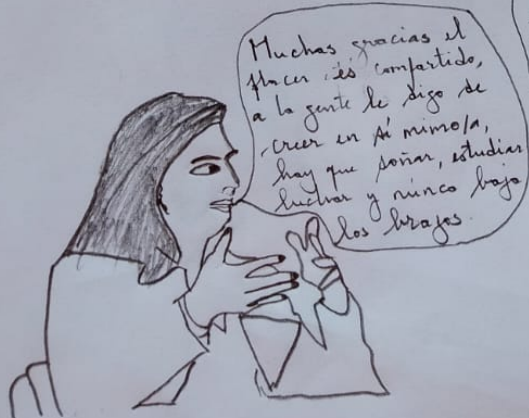 Muchas gracias el
placer es compartido,
a la gente le digo de
creer en sí mimo/a,
hay que soñar, estudiar
luchar y núnco bajo
los brazos.